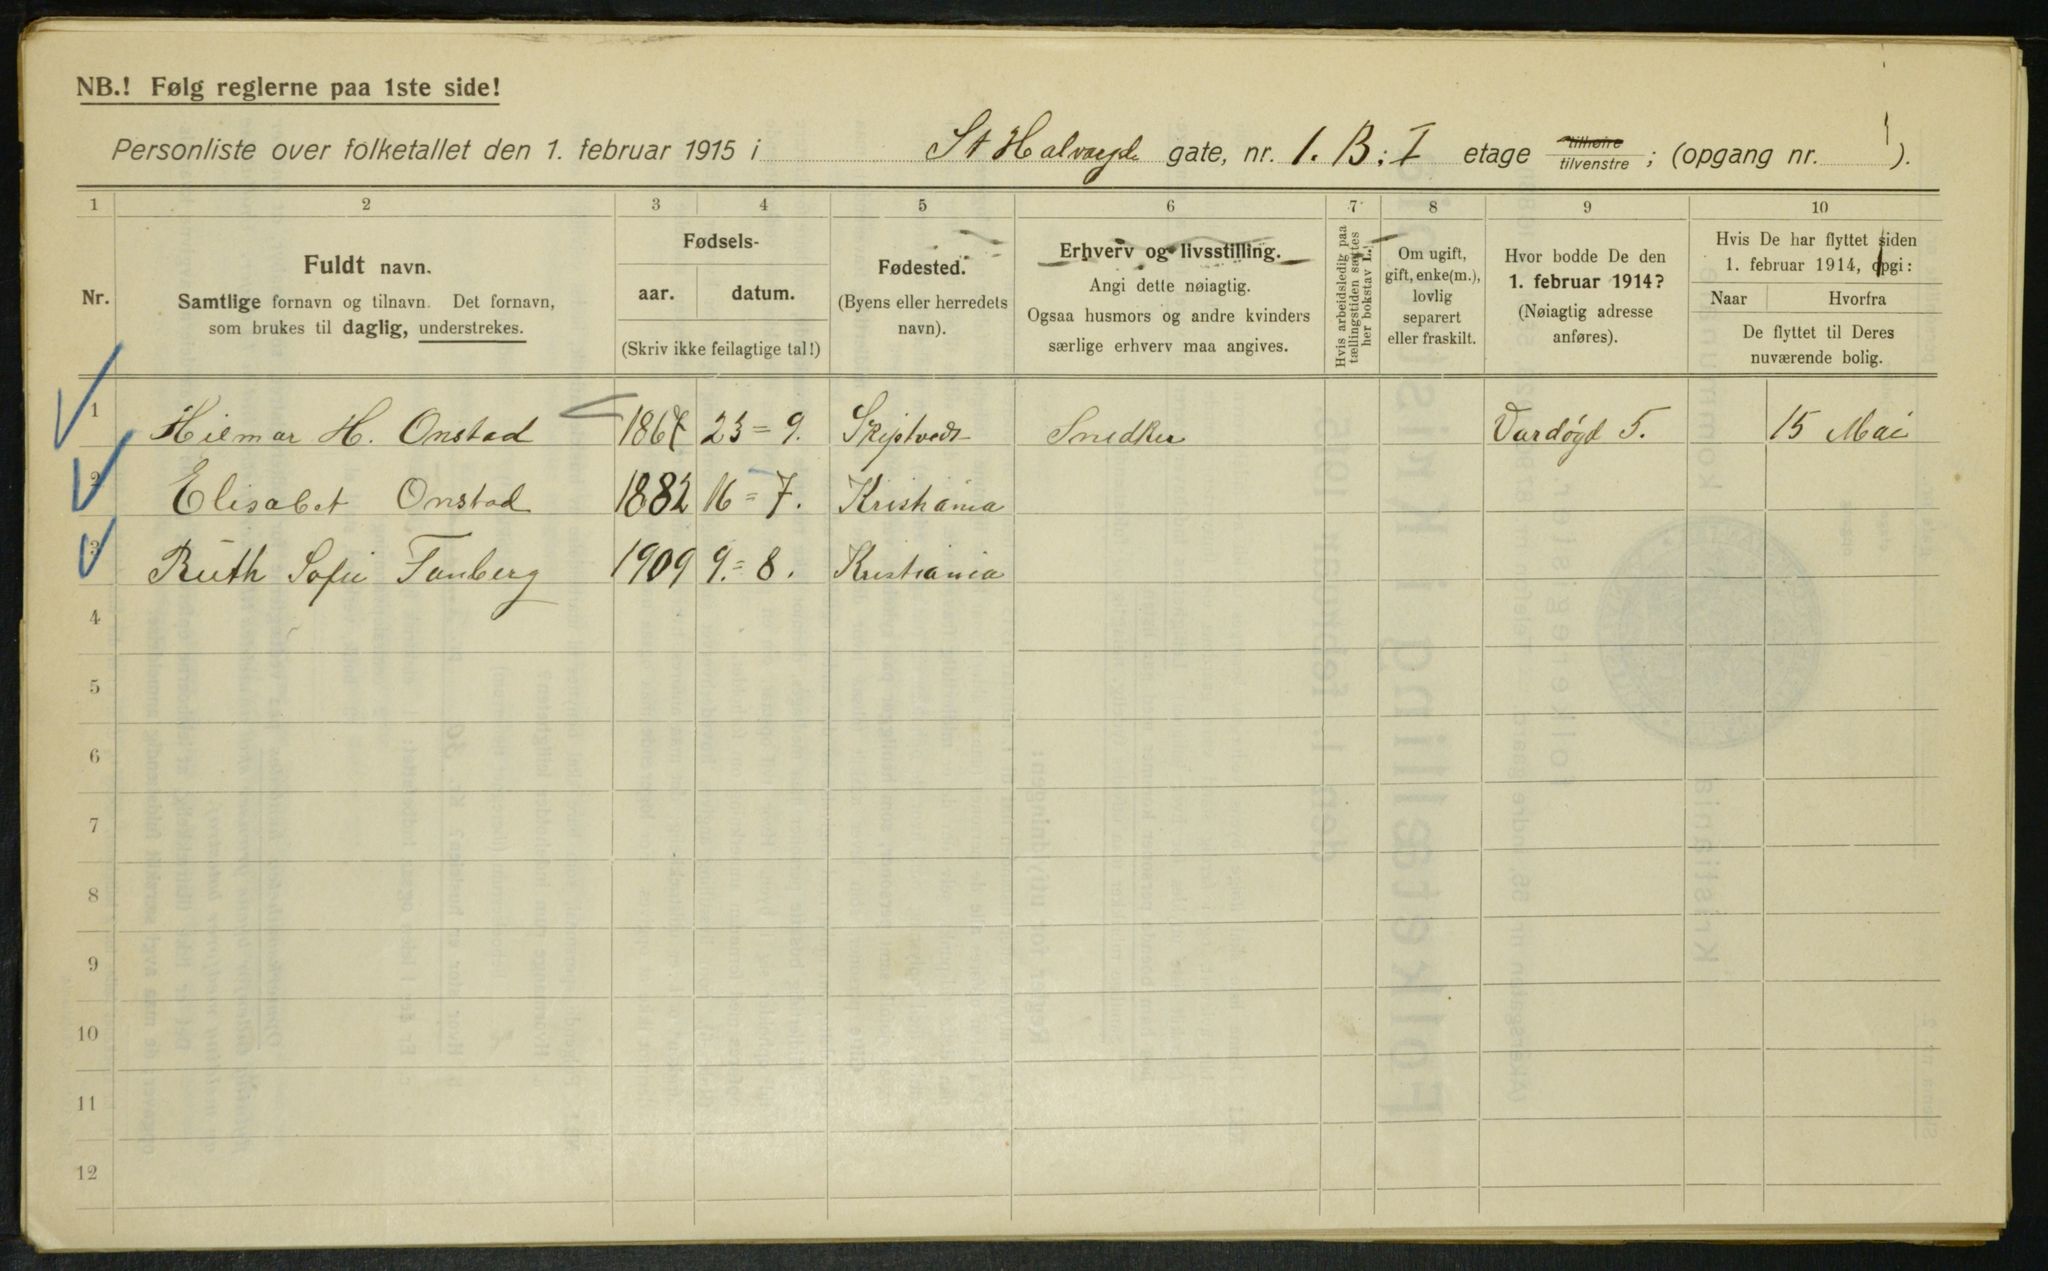 NB.! Følg reglerne paa 1ste side!
Personliste over folketallet den 1. februar 1915 i St Halvargds gate, nr. 1. B; I etage tilhøire tilvenstre; (opgang nr. 1).
1 2 3 4 5 6 7 8 9 10
Nr.
Fuldt navn.
Samtlige fornavn og tilnavn. Det fornavn,
som brukes til daglig, understrekes.
Fødsels-
aar. datum.
(Skriv ikke feilagtige tal!)
Fødested.
(Byens eller herredets
navn).
Erhverv og livsstilling.
Angi dette nøiagtig.
Ogsaa husmors og andre kvinders
særlige erhverv maa angives.
Hvis arbeidsledig paa
tællingstiden sættes
her bokstav L.
Om ugift,
gift, enke(m.),
lovlig
separert
eller fraskilt.
Hvor bodde De den
1. februar 1914?
(Nøiagtig adresse
anføres).
Hvis De har flyttet siden
1. februar 1914, opgi:
Naar Hvorfra
De flyttet til Deres
nuværende bolig.
1 Hilmar H. Onstad 23 = 9. Skiptvedt Snedker Vardøgd 5. 15 Mai
2 Elisabet Onstad 1882 16 = 7. Kristiania
3 Ruth Sofie Fanberg 1909 9. = 8. Kristiania
4
5
6
7
8
9
10
11
12